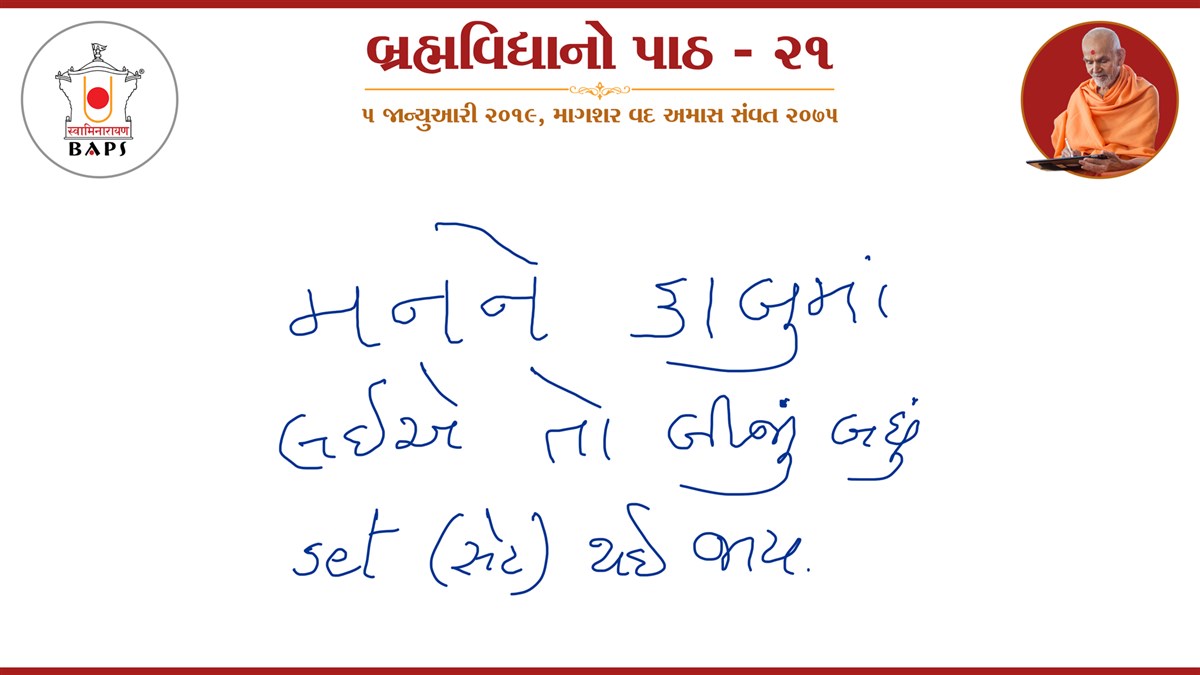 બ્રહ્મવિદ્યાનો પાઠ - ૨૧
૫ જાન્યુઆરી ૨૦૧૯, માગશર વદ અમાસ સંવત ૨૦૭૫
स्वामिनारायण
BAPS
®
મનને કાબુમાં
લઈએ તો બીજું બધું
set (સેટ) થઈ જાય.